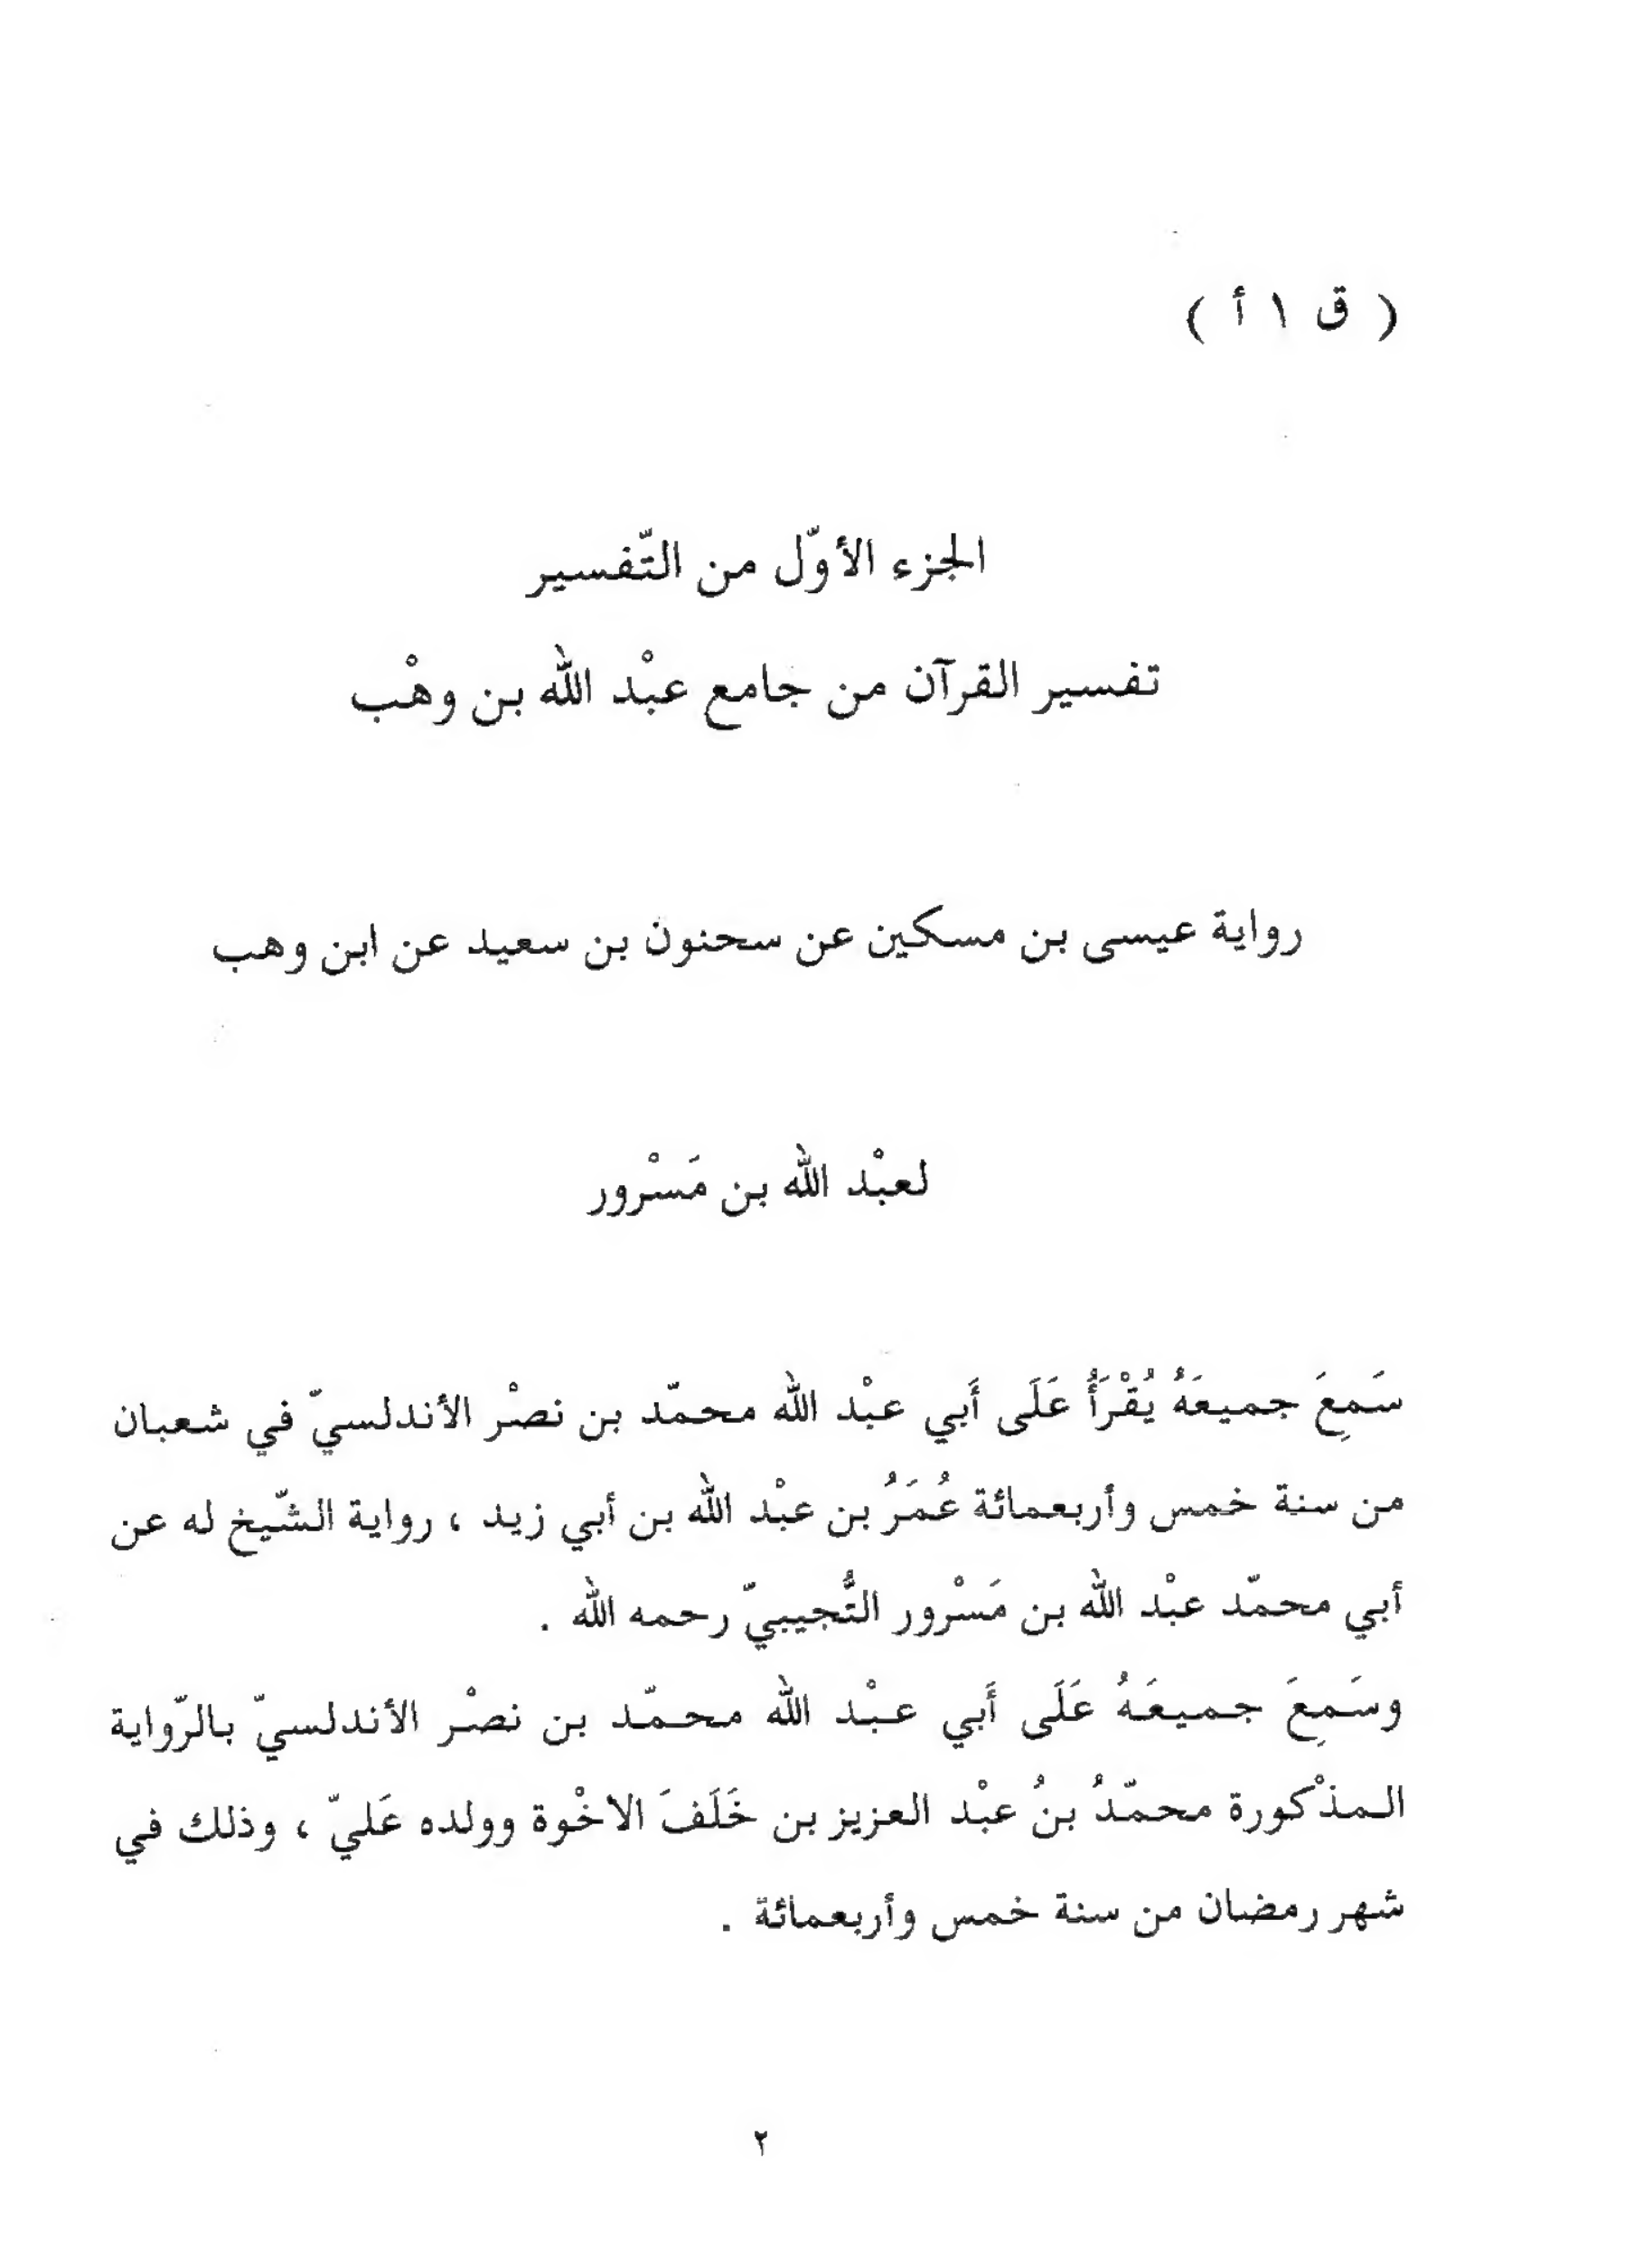 ( ق ١ أ )
الجزء الأوّل من التّفسير
تفسير القرآن من جامع عبْد اللّٰه بن وهْب
رواية عيسى بن مسكين عن سحنون بن سعيد عن ابن وهب
لعبْد اللّٰه بن مَسْرور
سَمِعَ جميعَهُ يُقْرَأُ عَلَى أَبي عبْد اللّٰه محمّد بن نصْر الأندلسيّ في شعبان
من سنة خمس وأربعمائة عُمَرُ بن عبْد اللّٰه بن أبي زيد ، رواية الشّيخ له عن
أبي محمّد عبْد اللّٰه بن مَسْرور التُّجيبيّ رحمه اللّٰه .
وسَمِعَ جميعَهُ عَلَى أَبي عبْد اللّٰه محمّد بن نصْر الأندلسيّ بالرّواية
المذْكورة محمّدُ بنُ عبْد العزيز بن خَلَفَ الاخْوة وولده عَليّ ، وذلك في
شهر رمضان من سنة خمس وأربعمائة .
٢